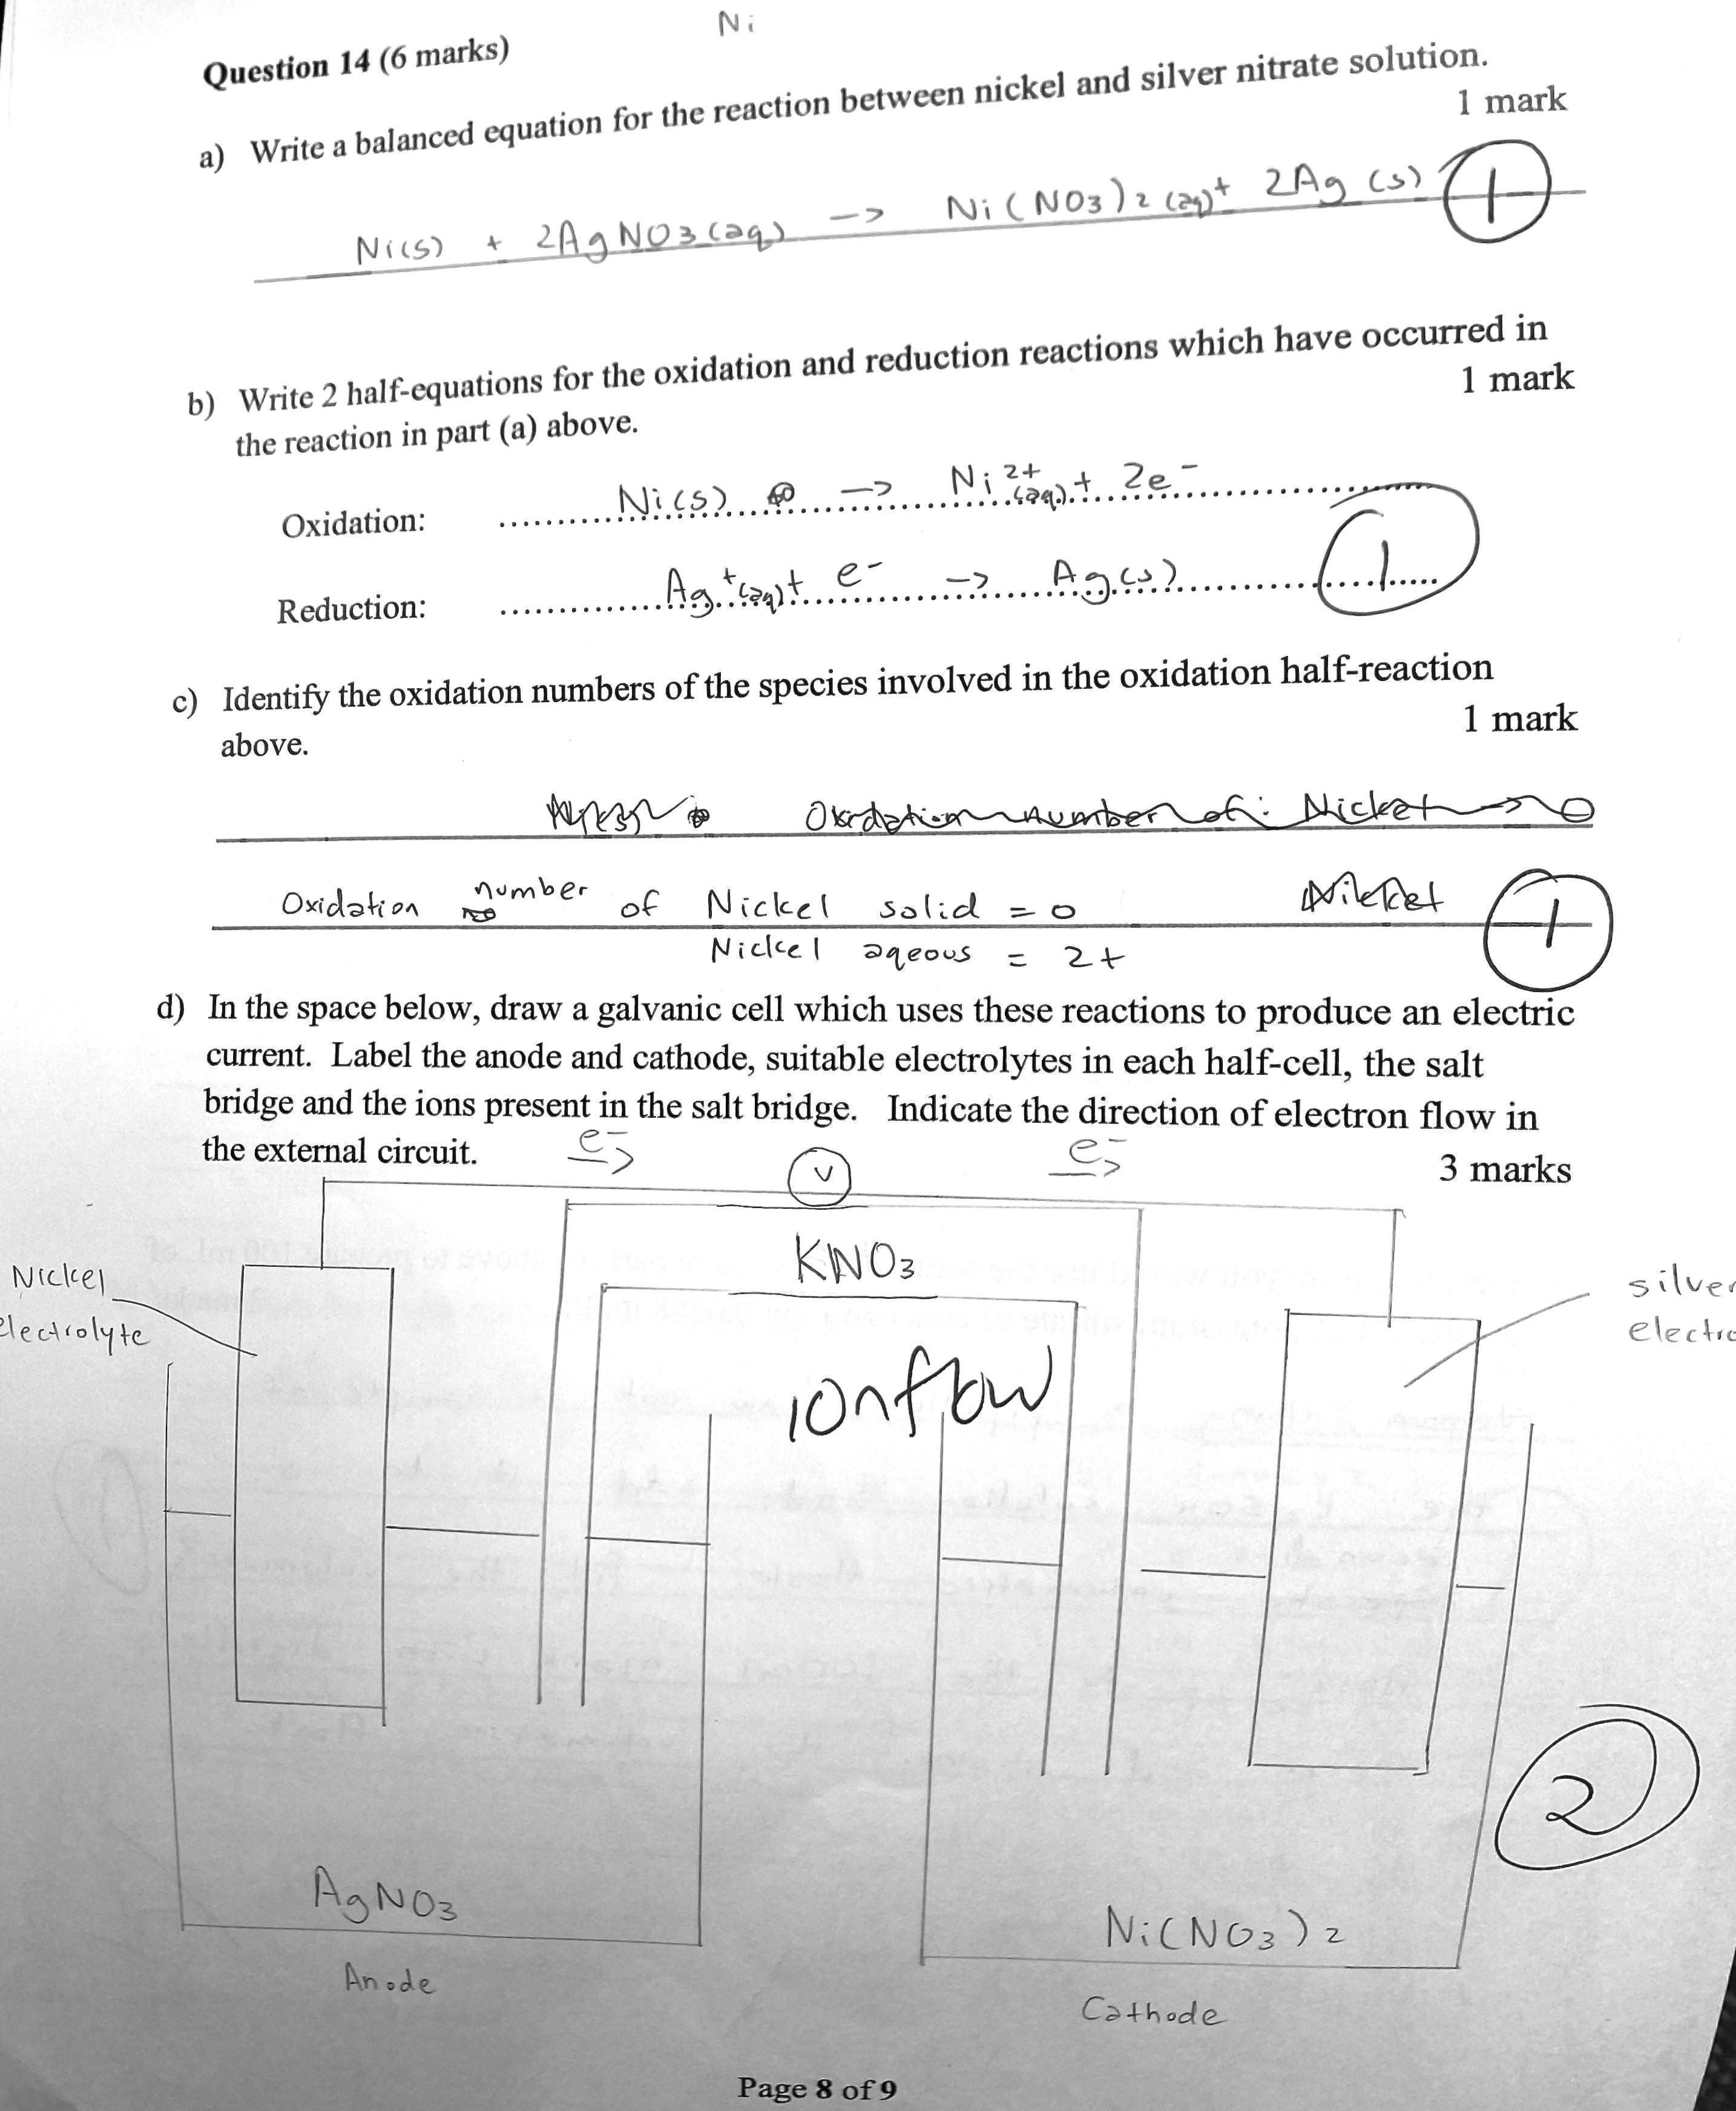 Ni
Question 14 (6 marks)
a) Write a balanced equation for the reaction between nickel and silver nitrate solution.
1 mark
Ni(s) + 2AgNO3(aq) -> Ni(NO3)2(aq) + 2Ag(s)
1
b) Write 2 half-equations for the oxidation and reduction reactions which have occurred in
the reaction in part (a) above.
1 mark
Oxidation: Ni(s) -> Ni2+(aq) + 2e-
Reduction: Ag+(aq) + e- -> Ag(s)
1
c) Identify the oxidation numbers of the species involved in the oxidation half-reaction
above.
1 mark
Oxidation number of: Nickel -> 0
Oxidation number of Nickel solid = 0
Nickel aqeous = 2+
1
d) In the space below, draw a galvanic cell which uses these reactions to produce an electric
current. Label the anode and cathode, suitable electrolytes in each half-cell, the salt
bridge and the ions present in the salt bridge. Indicate the direction of electron flow in
the external circuit.
3 marks
e- ->
V
e- ->
KNO3
Nickel
electrolyte
silver
electro
ionflow
2
AgNO3
Ni(NO3)2
Anode
Cathode
Page 8 of 9